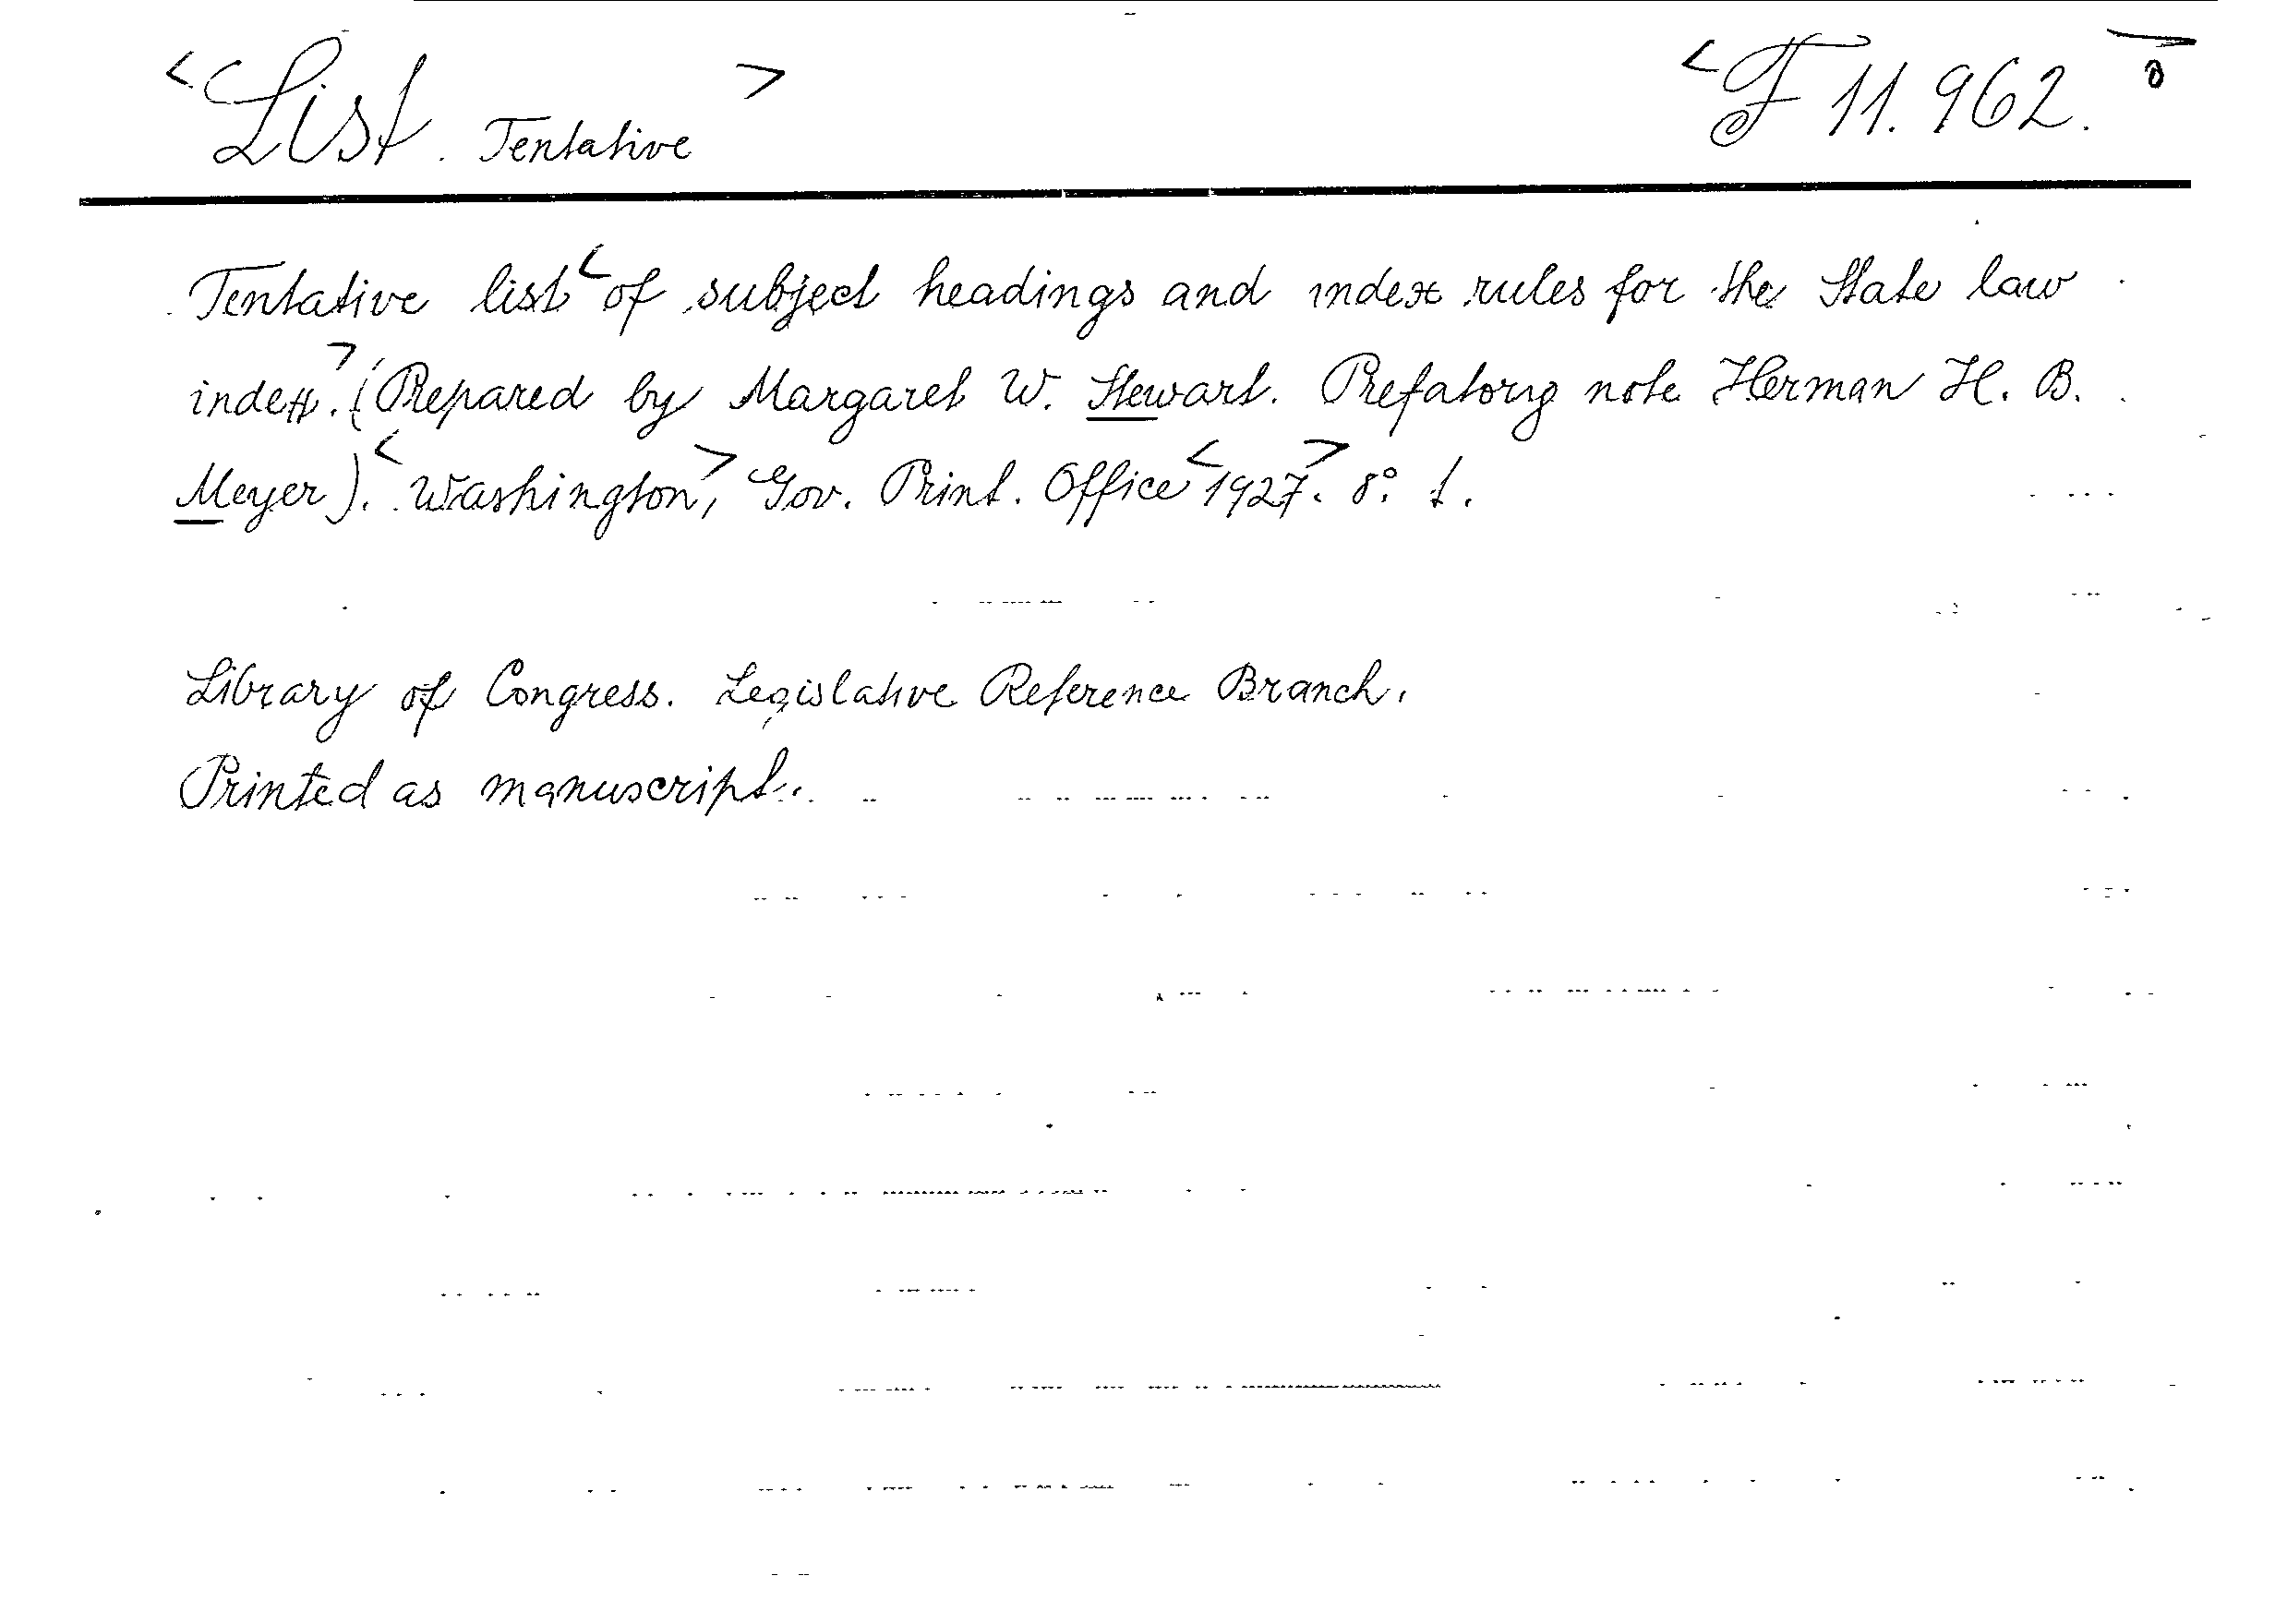 <List. Tentative> <F 11.962.>
Tentative list< of subject headings and index rules for the State law
index.> (Prepared by Margaret W. Stewart. Prefatory note Herman H. B.
Meyer). <Washington>, Gov. Print. Office <1927>. 8° 1.
Library of Congress. Legislative Reference Branch.
Printed as manuscript.